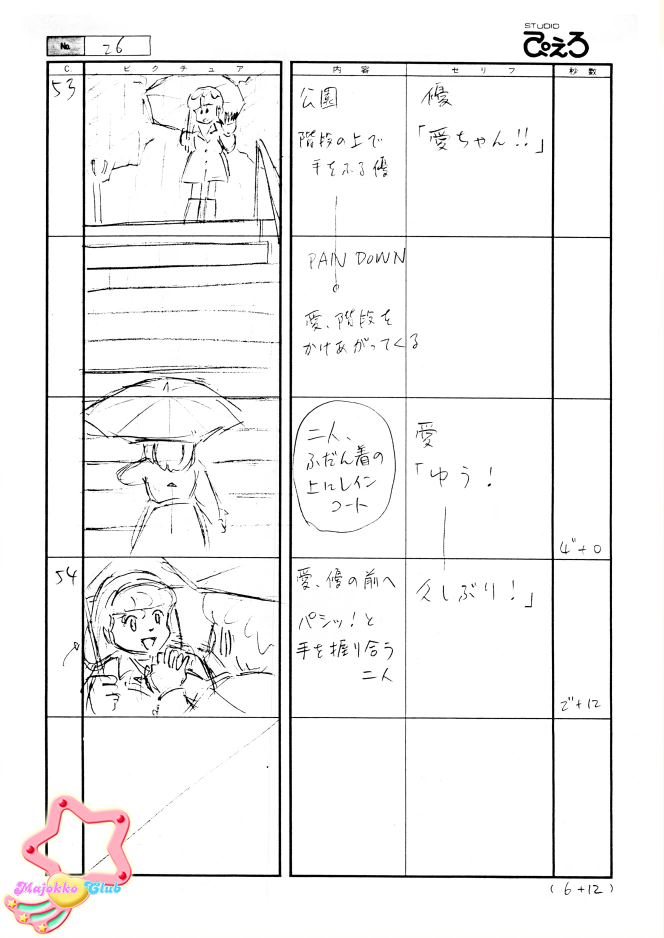 STUDIO
ぴえろ
No. 26
C. ピクチュア 内容 セリフ 秒数
53
公園
階段の上で
手をふる優
優
「愛ちゃん!!」
PAN DOWN
愛、階段を
かけあがってくる
二人、
ふだん着の
上にレイン
コート
愛
「ゆう!
4"+0
54
愛、優の前へ
パシッ!と
手を握り合う
二人
久しぶり!」
2"+12
(6+12)
Majokko Club